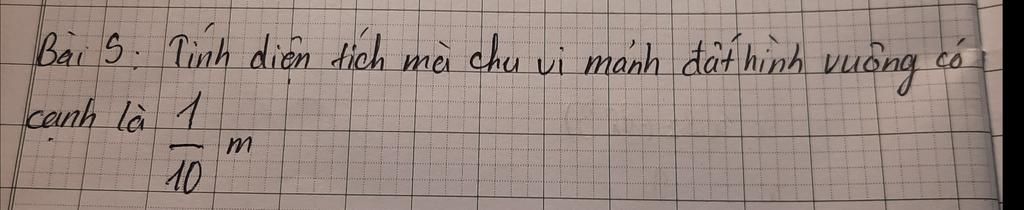 Bài 5: Tính diện tích mà chu vi mảnh đất hình vuông có
cạnh là 1/10 m